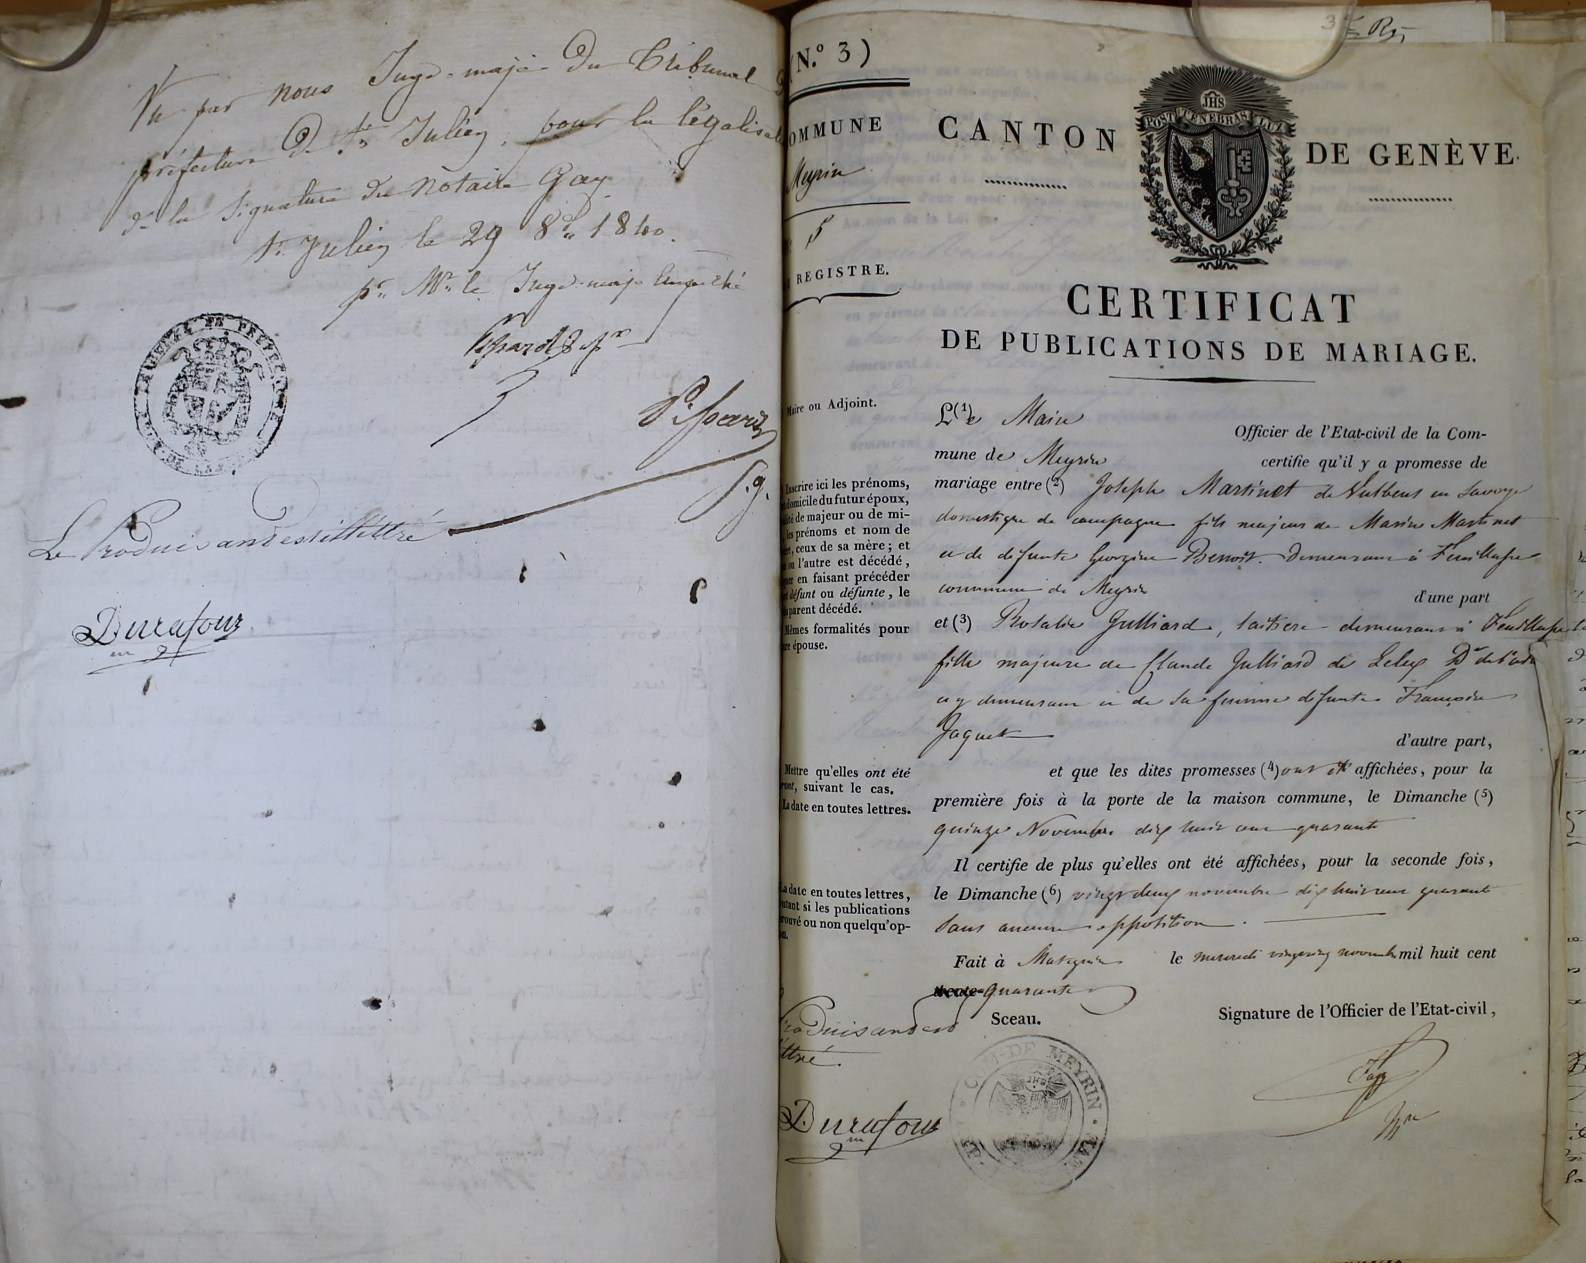 Vu par nous Juge-maje du Tribunal
préfecture de St Julien, pour la légalisa
de la signature du Notaire Gay
St Julien le 29 8bre 1840.
pr Mr le Juge-maje empêché
Le Produisant est illettré
Durafour
3
(N.º 3)
OMMUNE
Meyrin
5
REGISTRE.
CANTON DE GENÈVE.
JHS
POST TENEBRAS LUX
CERTIFICAT
DE PUBLICATIONS DE MARIAGE.
Maire ou Adjoint.
L(1)e Maire Officier de l'Etat-civil de la Com-
mune de Meyrin certifie qu'il y a promesse de
mariage entre (2) Joseph Martinet de Vulbens en Savoye
domestique de campagne fils majeur de Marin Martinet
et de défunte Georgine Benoit. demeurant à Feuillasse
commune de Meyrin d'une part
et (3) Rosalie Julliard, laitière demeurant à Feuillasse
fille majeure de Claude Julliard de Lelex Dt de l'ain
et y demeurant et de sa femme défunte Françoise
Jaquet d'autre part,
et que les dites promesses (4) ont été affichées, pour la
première fois à la porte de la maison commune, le Dimanche (5)
quinze Novembre dix huit cent quarante
Il certifie de plus qu'elles ont été affichées, pour la seconde fois,
le Dimanche (6) vingt deux novembre dix huit cent quarante
sans aucune opposition.
Fait à le mercredi vingt cinq novembre mil huit cent
quarante
Sceau. Signature de l'Officier de l'Etat-civil,
Inscrire ici les prénoms,
domicile du futur époux,
té de majeur ou de mi-
les prénoms et nom de
ceux de sa mère ; et
l'autre est décédé,
en faisant précéder
défunt ou défunte, le
parent décédé.
Mêmes formalités pour
épouse.
Mettre qu'elles ont été
ront, suivant le cas.
La date en toutes lettres.
La date en toutes lettres,
tant si les publications
rouvé ou non quelqu'op-
roduisant est
ttré.
Durafour
COM. DE MEYRIN